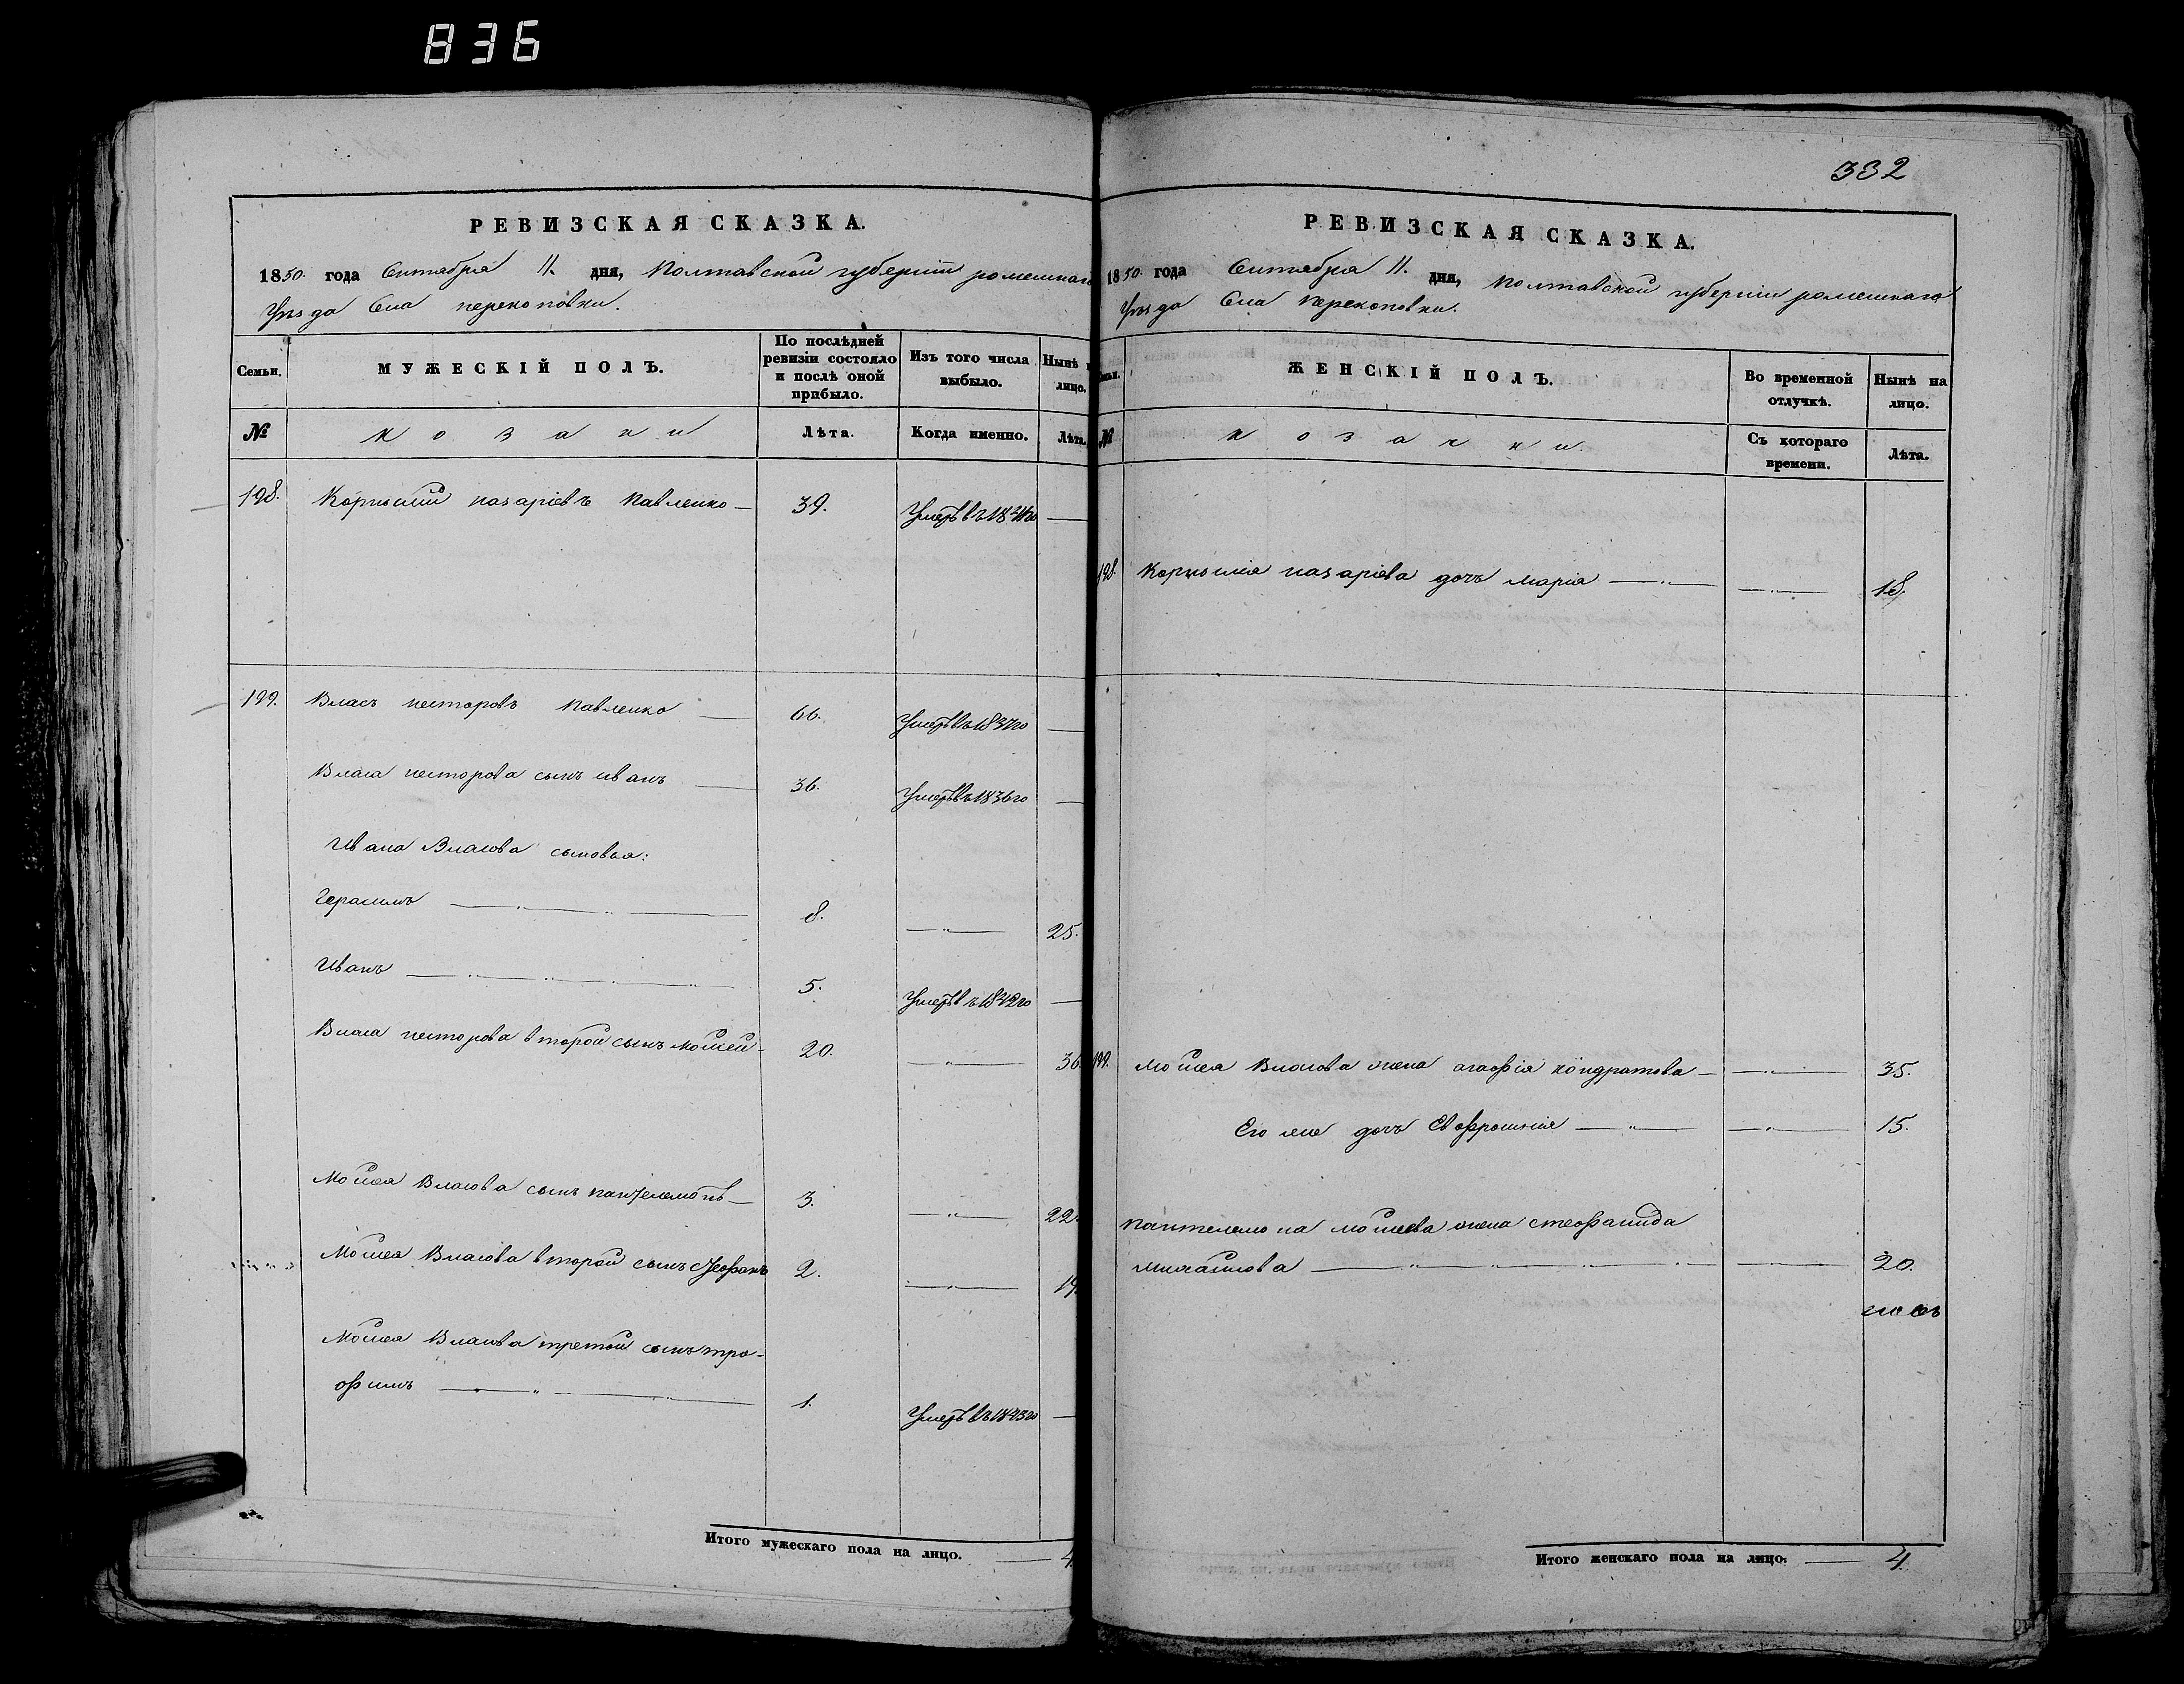 836
382
РЕВИЗСКАЯ СКАЗКА.
1850. года Сентября 11. дня, Полтавской губернiи роменскаго
Уѣзда Села перекоповки.
Семьи.
МУЖЕСКIЙ ПОЛЪ.
По послѣдней ревизiи состояло и послѣ оной прибыло.
Изъ того числа выбыло.
Нынѣ н лицо.
№
козаки
Лѣта.
Когда именно.
Лѣта.
198. Корнилiй назарiевъ Павленко — 39. —
199. Власъ несторовъ Павленко — 66. Умеръ въ 1837го —
Власа несторова сынъ иванъ — 36. Умеръ въ 1836го —
Ивана Власова сыновья:
Герасимъ — 8. — 25.
Иванъ — 5. —
Власа несторова второй сынъ мойсей — 20. — 36.
Мойсея Власова сынъ пантелемонъ — 3. — 22.
Мойсея Власова второй сынъ 2. — 19.
Мойсея Власова третой сынъ тро-
фимъ — 1. —
Итого мужескаго пола на лицо. — 4.
РЕВИЗСКАЯ СКАЗКА.
1850. года Сентября 11. дня, Полтавской губернiи роменскаго
Уѣзда Села Перекоповки.
ЖЕНСКIЙ ПОЛЪ.
Во временной отлучкѣ.
Нынѣ на лицо.
№
козачки.
Съ котораго времени.
Лѣта.
198. Корнилiя назарiева дочь марiя — — 18.
199. Мойсея Власова жена агафiя кондратова — — 35.
Его же дочь Евфросинiя — — 15.
Пантелемона мойсеева жена стефанида
— — 20.
Итого женскаго пола на лицо: — 4.